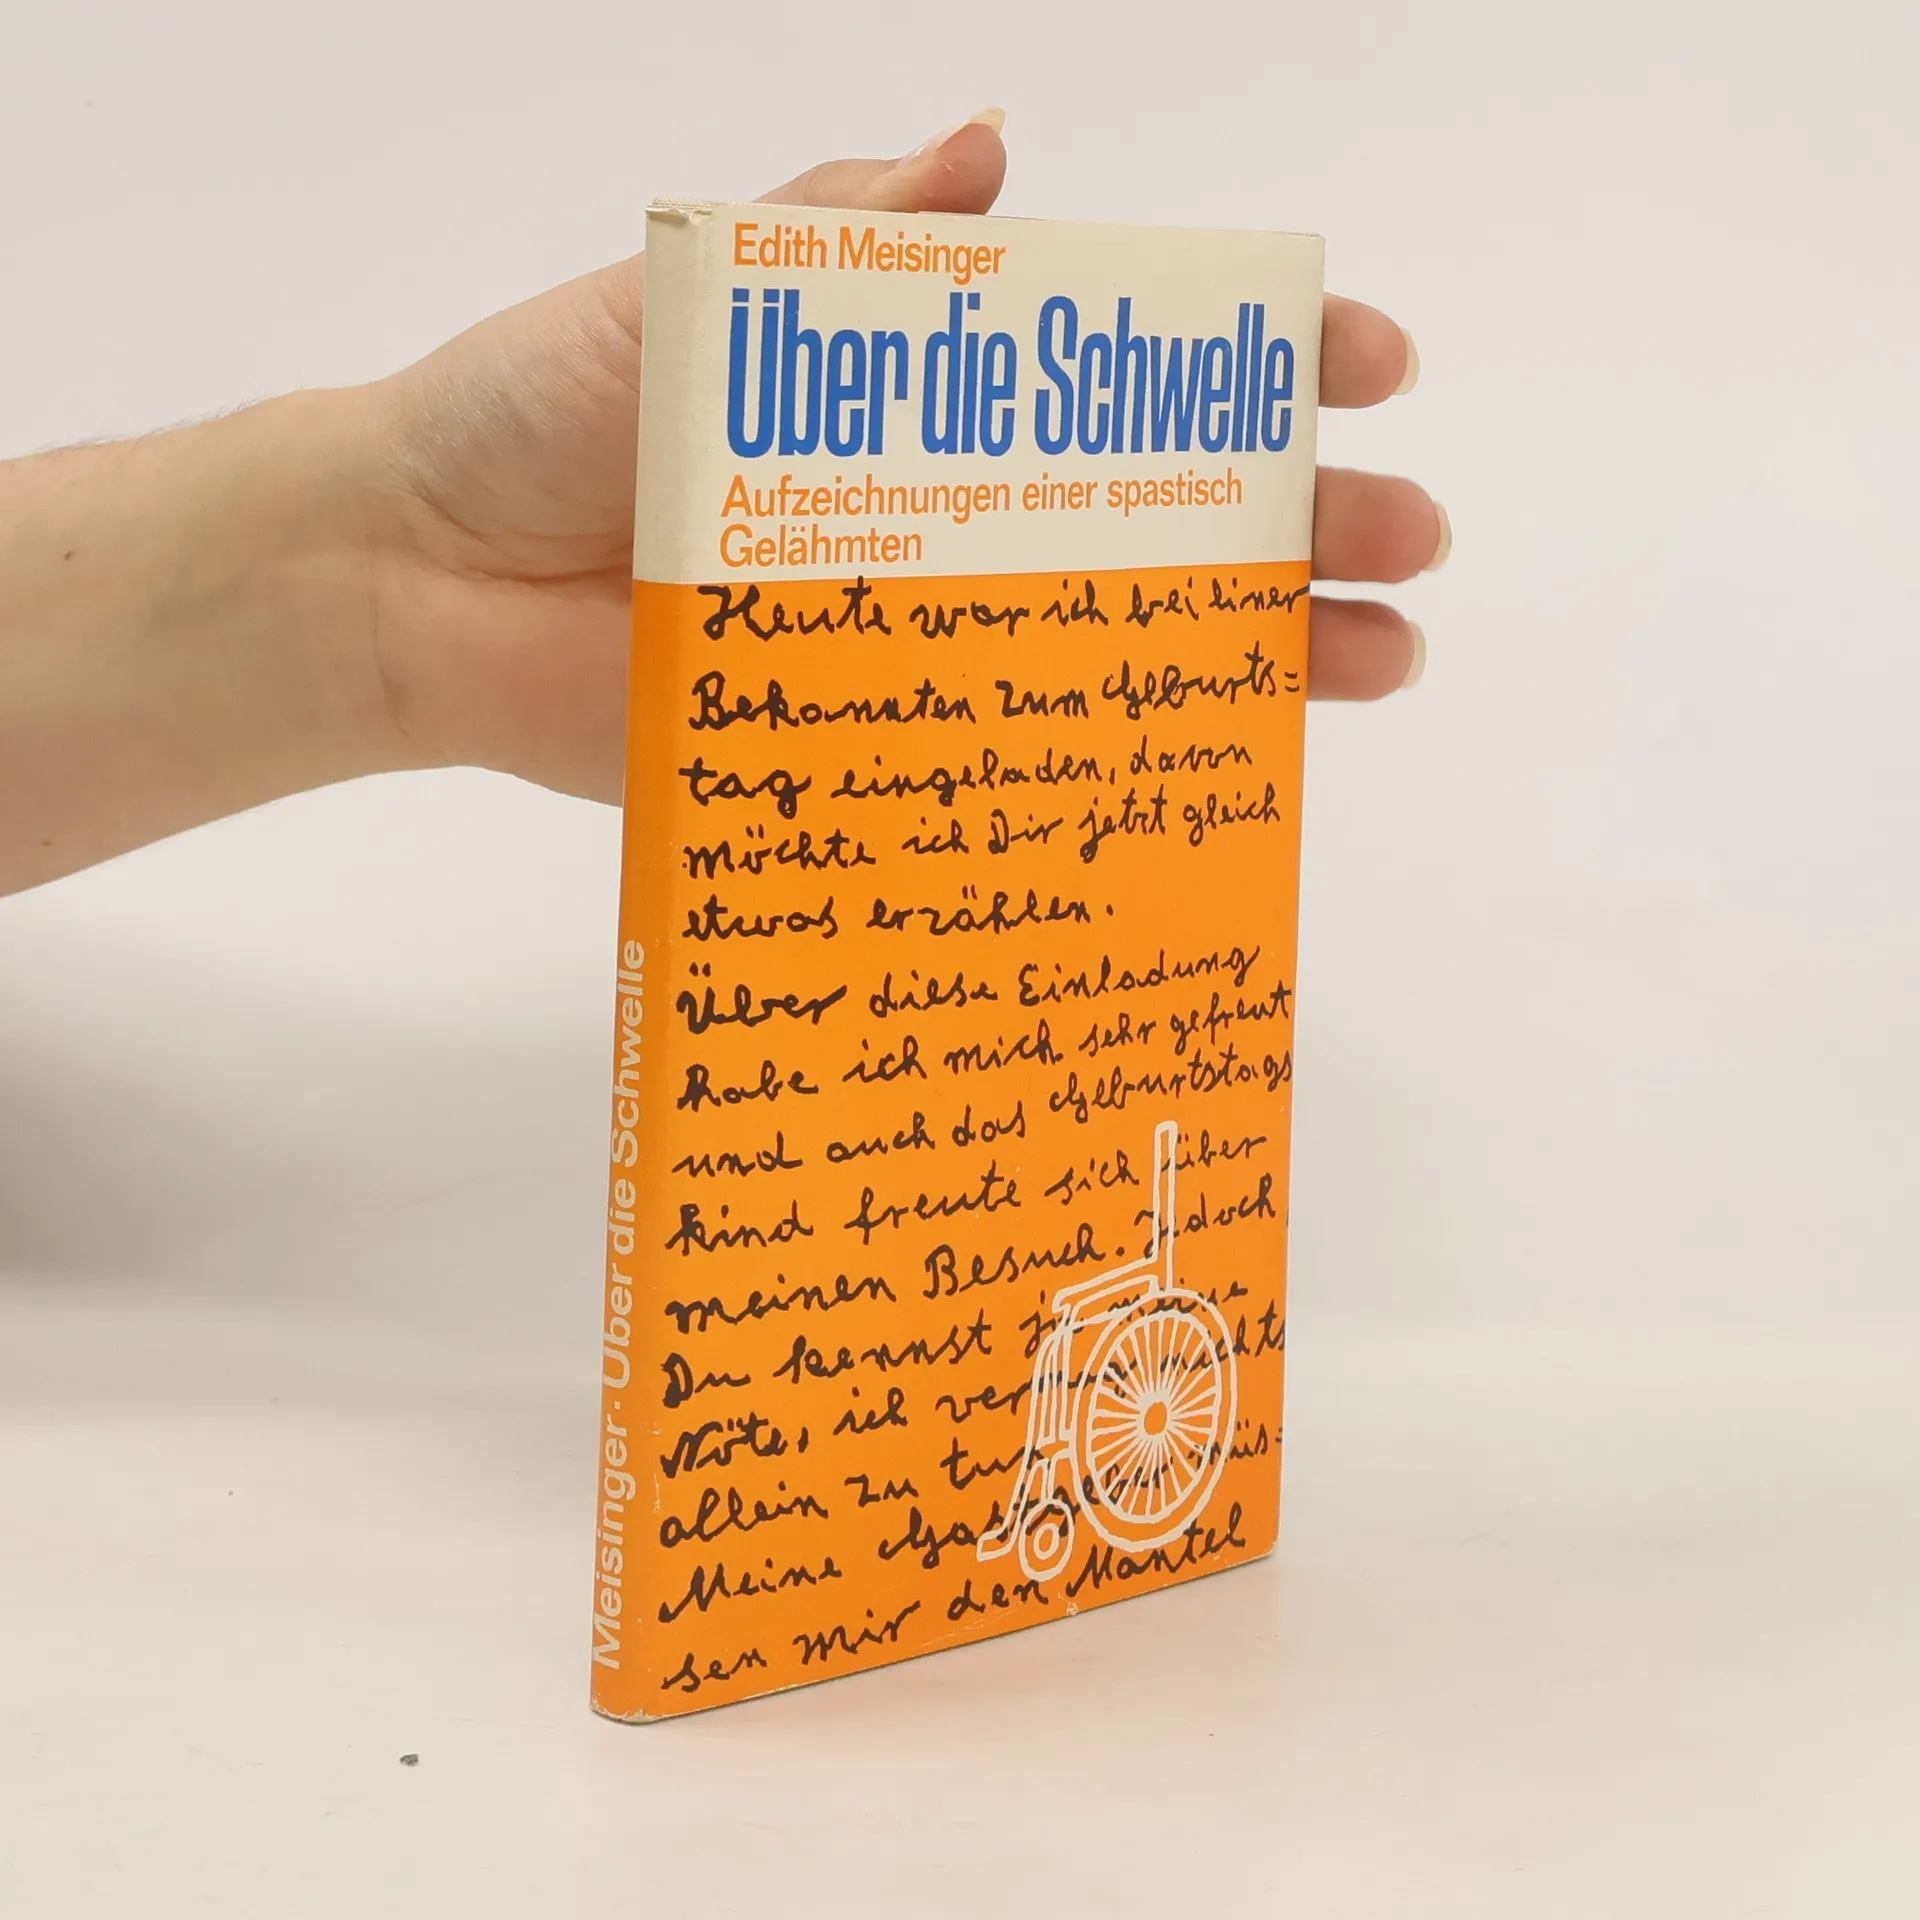 Edith Meisinger
Über die Schwelle
Aufzeichnungen einer spastisch
Gelähmten
Heute war ich bei einer
Bekannten zum Geburts=
tag eingeladen, davon
möchte ich Dir jetzt gleich
etwas erzählen.
Über diese Einladung
habe ich mich sehr gefreut
und auch das Geburtstags
kind freute sich über
meinen Besuch. Jedoch
Du kennst ja meine
Nöte, ich vermag nichts
allein zu tun
Meine Gastgeber müs=
sen mir den Mantel
Meisinger · Über die Schwelle